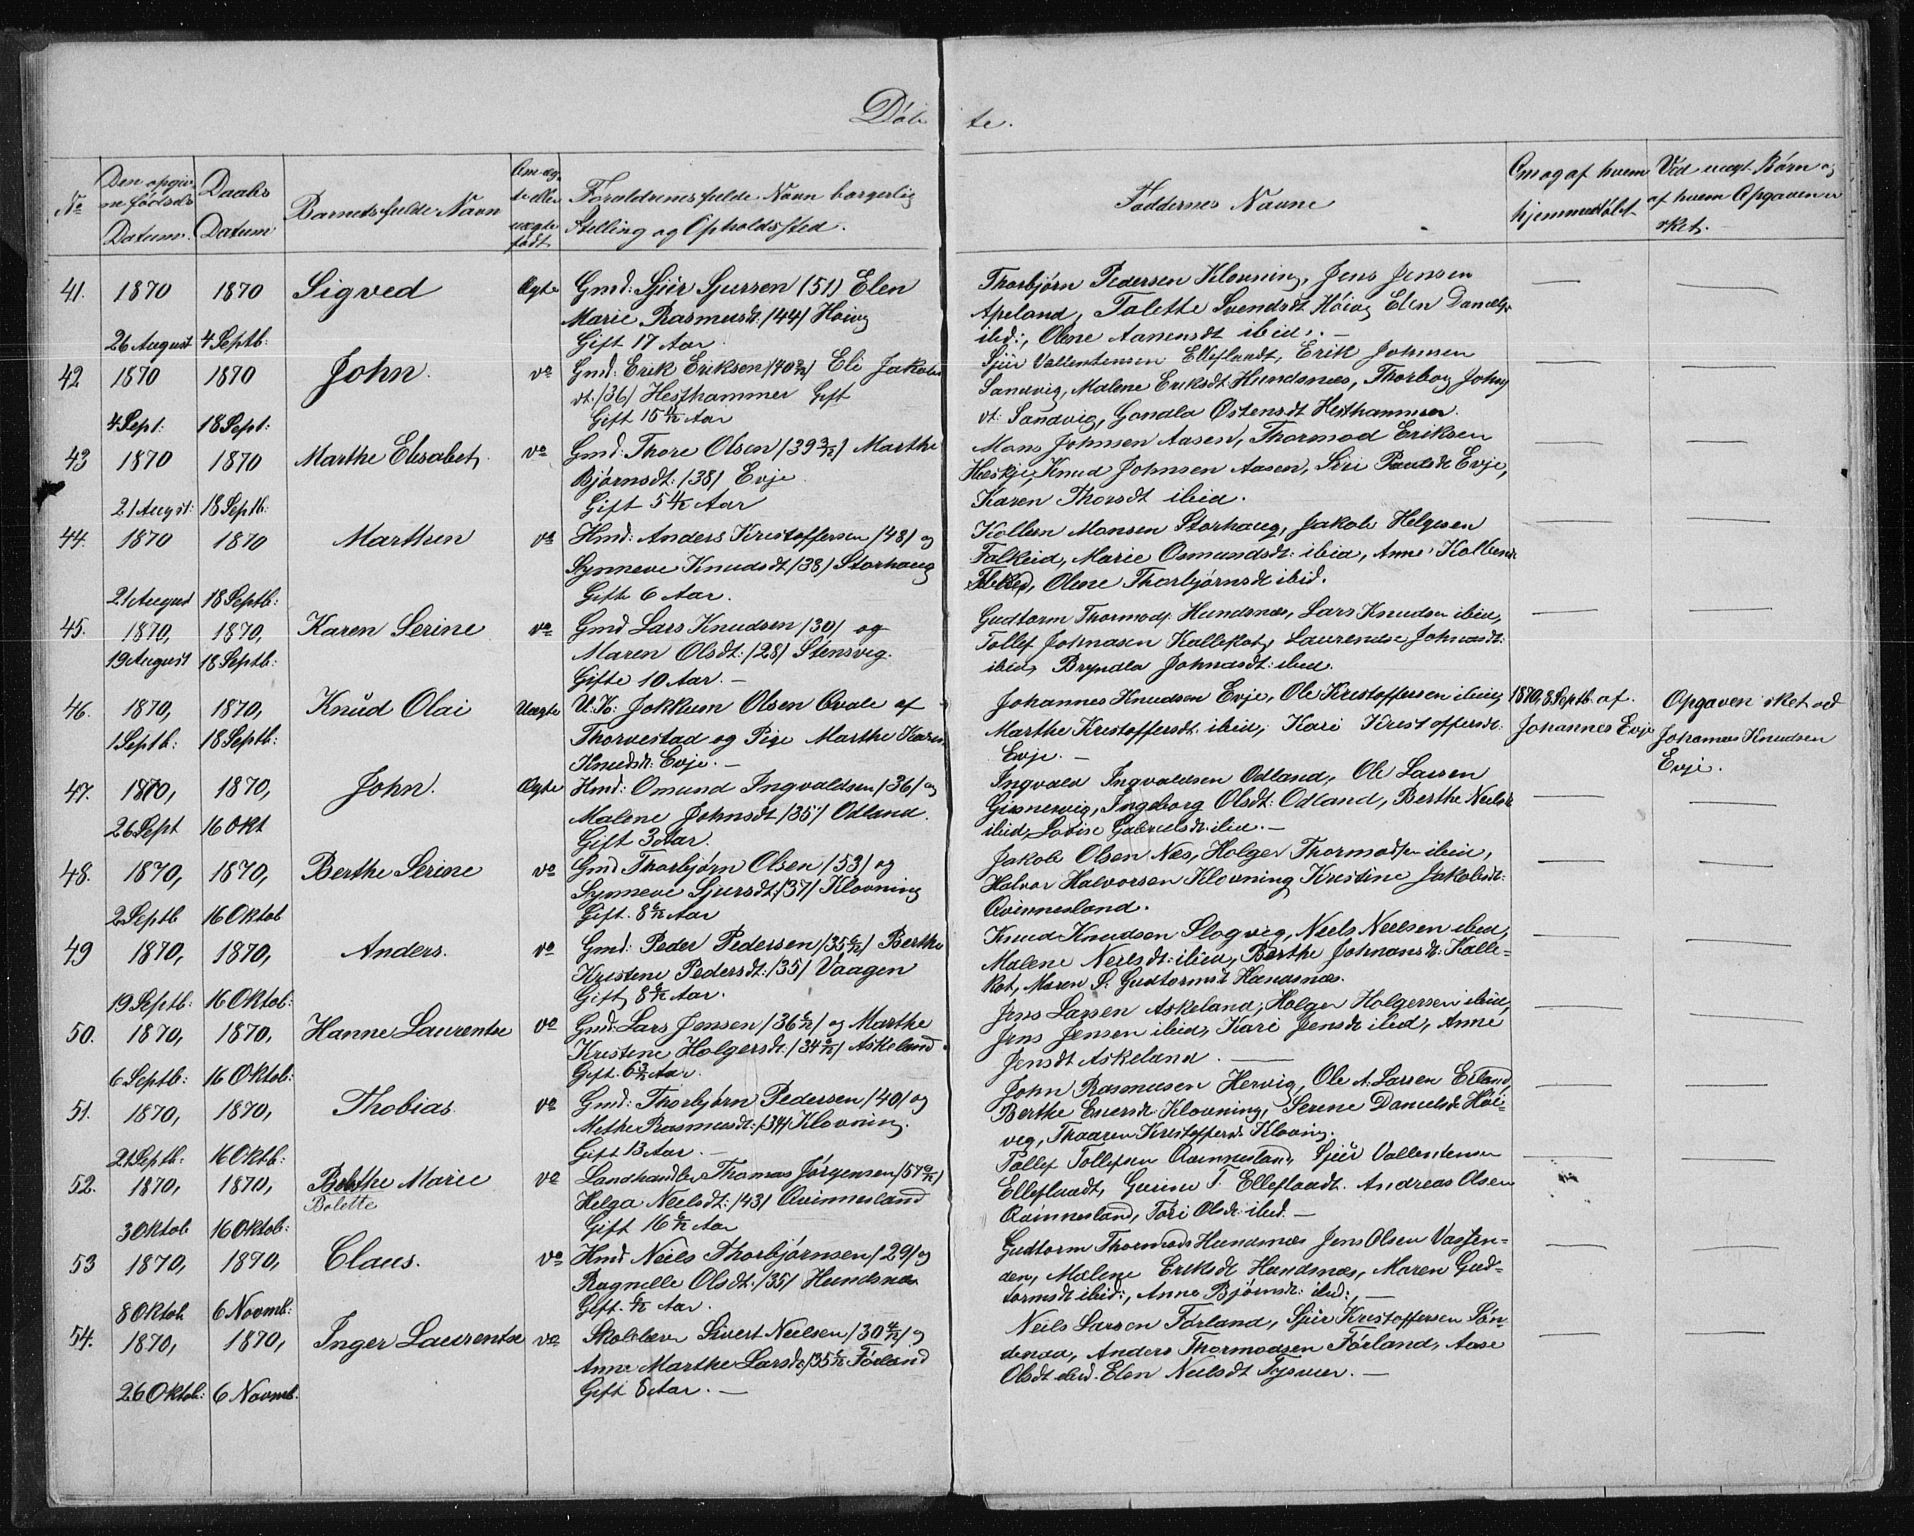 Døb te.
No
Den opgiv- ne fødsels Datum.
Daabs Datum
Barnets fulde Navn
Om æg- te eller uægte født
Forældrenes fulde Navn borgerlig Stilling og Opholdssted.
Faddernes Navne
Om og af hvem hjemmedøbt
Ved uægt. Børn og af hvem Opgaven er sket.
41. 1870 26 August
1870 4 Septb:
Sigved
Ægte
Gmd: Sjur Sjursen (51) Elen
Marie Rasmusdt: /44/ Høivg
Gift 17 Aar
Thorbjørn Pedersen Klovning, Jens Jensen
Apeland, Talette Svendsdt Høivg Elen Danielsdt
ibid:, Olene Aanensdt ibid:. —
42 1870 4 Sept:
1870 18 Sept:
John.
do
Gmd: Erik Eriksen /40 /12/ Eli Jakobs
dt: /36/ Hesthammer Gift
Gift 15 /12 Aar
Sjur Vallentensen Elleflaadt, Erik Johnsen
Sandvig, Malene Eriksdt Hundsnæs, Thorbog Johns
dt: Sandvig, Gondla Østensdt Hesthammer.
43 1870 21 August:
1870 18 Septb:
Marthe Elisabet
do
Gmd: Thore Olsen /39 3/12/ Marthe
Bjørnsdt: /38/ Evje
Gift 5 4/12 Aar
Mons Johnsen Aasen, Thormod Eriksen
Heskje, Knud Johnsen Aasen, Siri Paulsdt Evje,
Karen Thorsdt ibid.
44. 1870 21 August
1870 18 Septb:
Marthen
do
Hmd: Anders Kristoffersen /48/ og
Synneve Knudsdt /38/ Storhaug
Gift 6 Aar.
Kolben Monsen Storhaug, Jakob Helgesen
Falkeid, Marie Osmundsdt: ibid, Anne Kolbens
 , Olene Thorbjørnsdt ibid.
45. 1870, 19 August
1870, 18 Septb:
Karen Serine
do
Gmd Lars Knudsen /30/ og
Maren Olsdt: /28/ Stensvig.
Gifte 10 Aar. —
Gudtorm Thormods: Hundsnæs, Lars Knudsen ibid,
Tollef Johnasen Kallekot, Laurendse Johnasdt:
ibid, Bryndla Johnasdt: ibid.
46. 1870, 1 Septb:
1870, 18 Septb:
Knud Olai
Uægte
U.K: Jokkum Olsen Qvale af
Thorvestad og Pige Marthe Karine
Knudsdt: Evje. —
Johannes Knudsen Evje, Ole Kristoffersen ibid,
Marthe Kristoffersdt. ibid, Kari Kristoffersdt:
Evje. —
1870, 8 Septb. af
Johannes Evje
Opgaven sket ved
Johannes Knudsen
Evje.
47. 1870, 26 Sept
1870, 16 Okt
John.
Ægte
Hmd: Omund Ingvaldsen /36/ og
Malene Johnsdt /35/ Odland.
Gift 3 Aar.
Ingvald Ingvaldsen Odland, Ole Larsen
Ginnervig, Ingeborg Olsdt: Odland, Berthe Neilsdt
ibid, Lovise Gabrielsdt: ibid. —
48. 1870, 2 Septb
1870, 16 Oktob
Berthe Serine
do
Gmd Thorbjørn Olsen /53/ og
Synneve Sjursdt /37/ Klovning
Gift. 8 /12 Aar
Jakob Olsen Næs, Holger Thormodsen ibid,
Halvor Halvorsen Klovning Kristine Jakobsdt:
Qvinnesland.
49 1870, 19 Septb:
1870, 16 Oktob:
Anders.
do
Gmd: Peder Pedersen /35 6/12/ Berthe
Kristene Pedersdt: /35/ Vaagen
Gift, 8 /12 Aar.
Knud Knudsen Slogvig, Neils Neelsen ibid,
Malene Neilsdt: ibid, Berthe Johnansdt: Kalle-
kot, Maren S. Gudtormsdt Hundsnæs.
50. 1870, 6 Septb:
1870, 16 Oktob:
Hanne Laurentse
do
Gmd: Lars Jensen /36 6/12/ og Marthe
Kristine Holgersdt: /34 /12/ Askeland
Gift. 6 /12 Aar.
Jens Larsen Askeland, Holger Holgersen ibid,
Jens Jensen ibid, Kari Jensdt ibid, Anne
Jensdt Askeland.
51. 1870, 21 Septb:
1870, 16 Oktb:
Thobias
do
Gmd: Thorbjørn Pedersen /40/ og
Methe Rasmusdt: /34/ Klovning.
Gift 13 Aar. —
John Rasmusen Hervig, Ole A. Larsen Erland,
Berthe Enersdt: Klovning, Serene Danielsdt Høi-
veg, Thaaren Kristoffersdt Kloving.
52. 1870, 3 Oktob
1870, 16 Oktob:
Bolethe Marie
Bolette
do
Landhandler Thomas Jørgensen /57 /12/
Helga Neelsdt: /43/ Qvinnesland
Gift 16 6/12 Aar
Tollef Tollefsen Qvinnesland, Sjur Vallentensen
Elleflaadt, Gurine T. Elleflaadt. Andreas Olsen
Qvinnesland, Tori Olsdt: ibid. —
53 1870, 8 Oktob
1870, 6 Novmb:
Claus.
do
Hmd Neils Thorbjørnsen /29/ og
Ragnille Olsdt: /35/ Hundsnæs
Gift. 6/12 Aar.
Gudtorm Thormods Hundsnæs Jens Olsen Vasten-
den, Malene Eriksdt Hundsnæs, Maren Gud-
tormsdt ibid:, Anne Bjørnsdt: ibid:, —
54. 1870, 26 Oktob:
1870, 6 Novmb.
Inger Laurentse
do
Skolelærer Sivert Neilsen /30 4/12/ og
Anne Marthe Larsdt: /35 /12 Førland
Gift 8 Aar. —
Neils Larsen Førland, Sjur Kristoffersen Søn-
denaa, Anders Thormodsen Førland, Aase
Olsdt ibid. Elen Neilsdt Tysvær. —